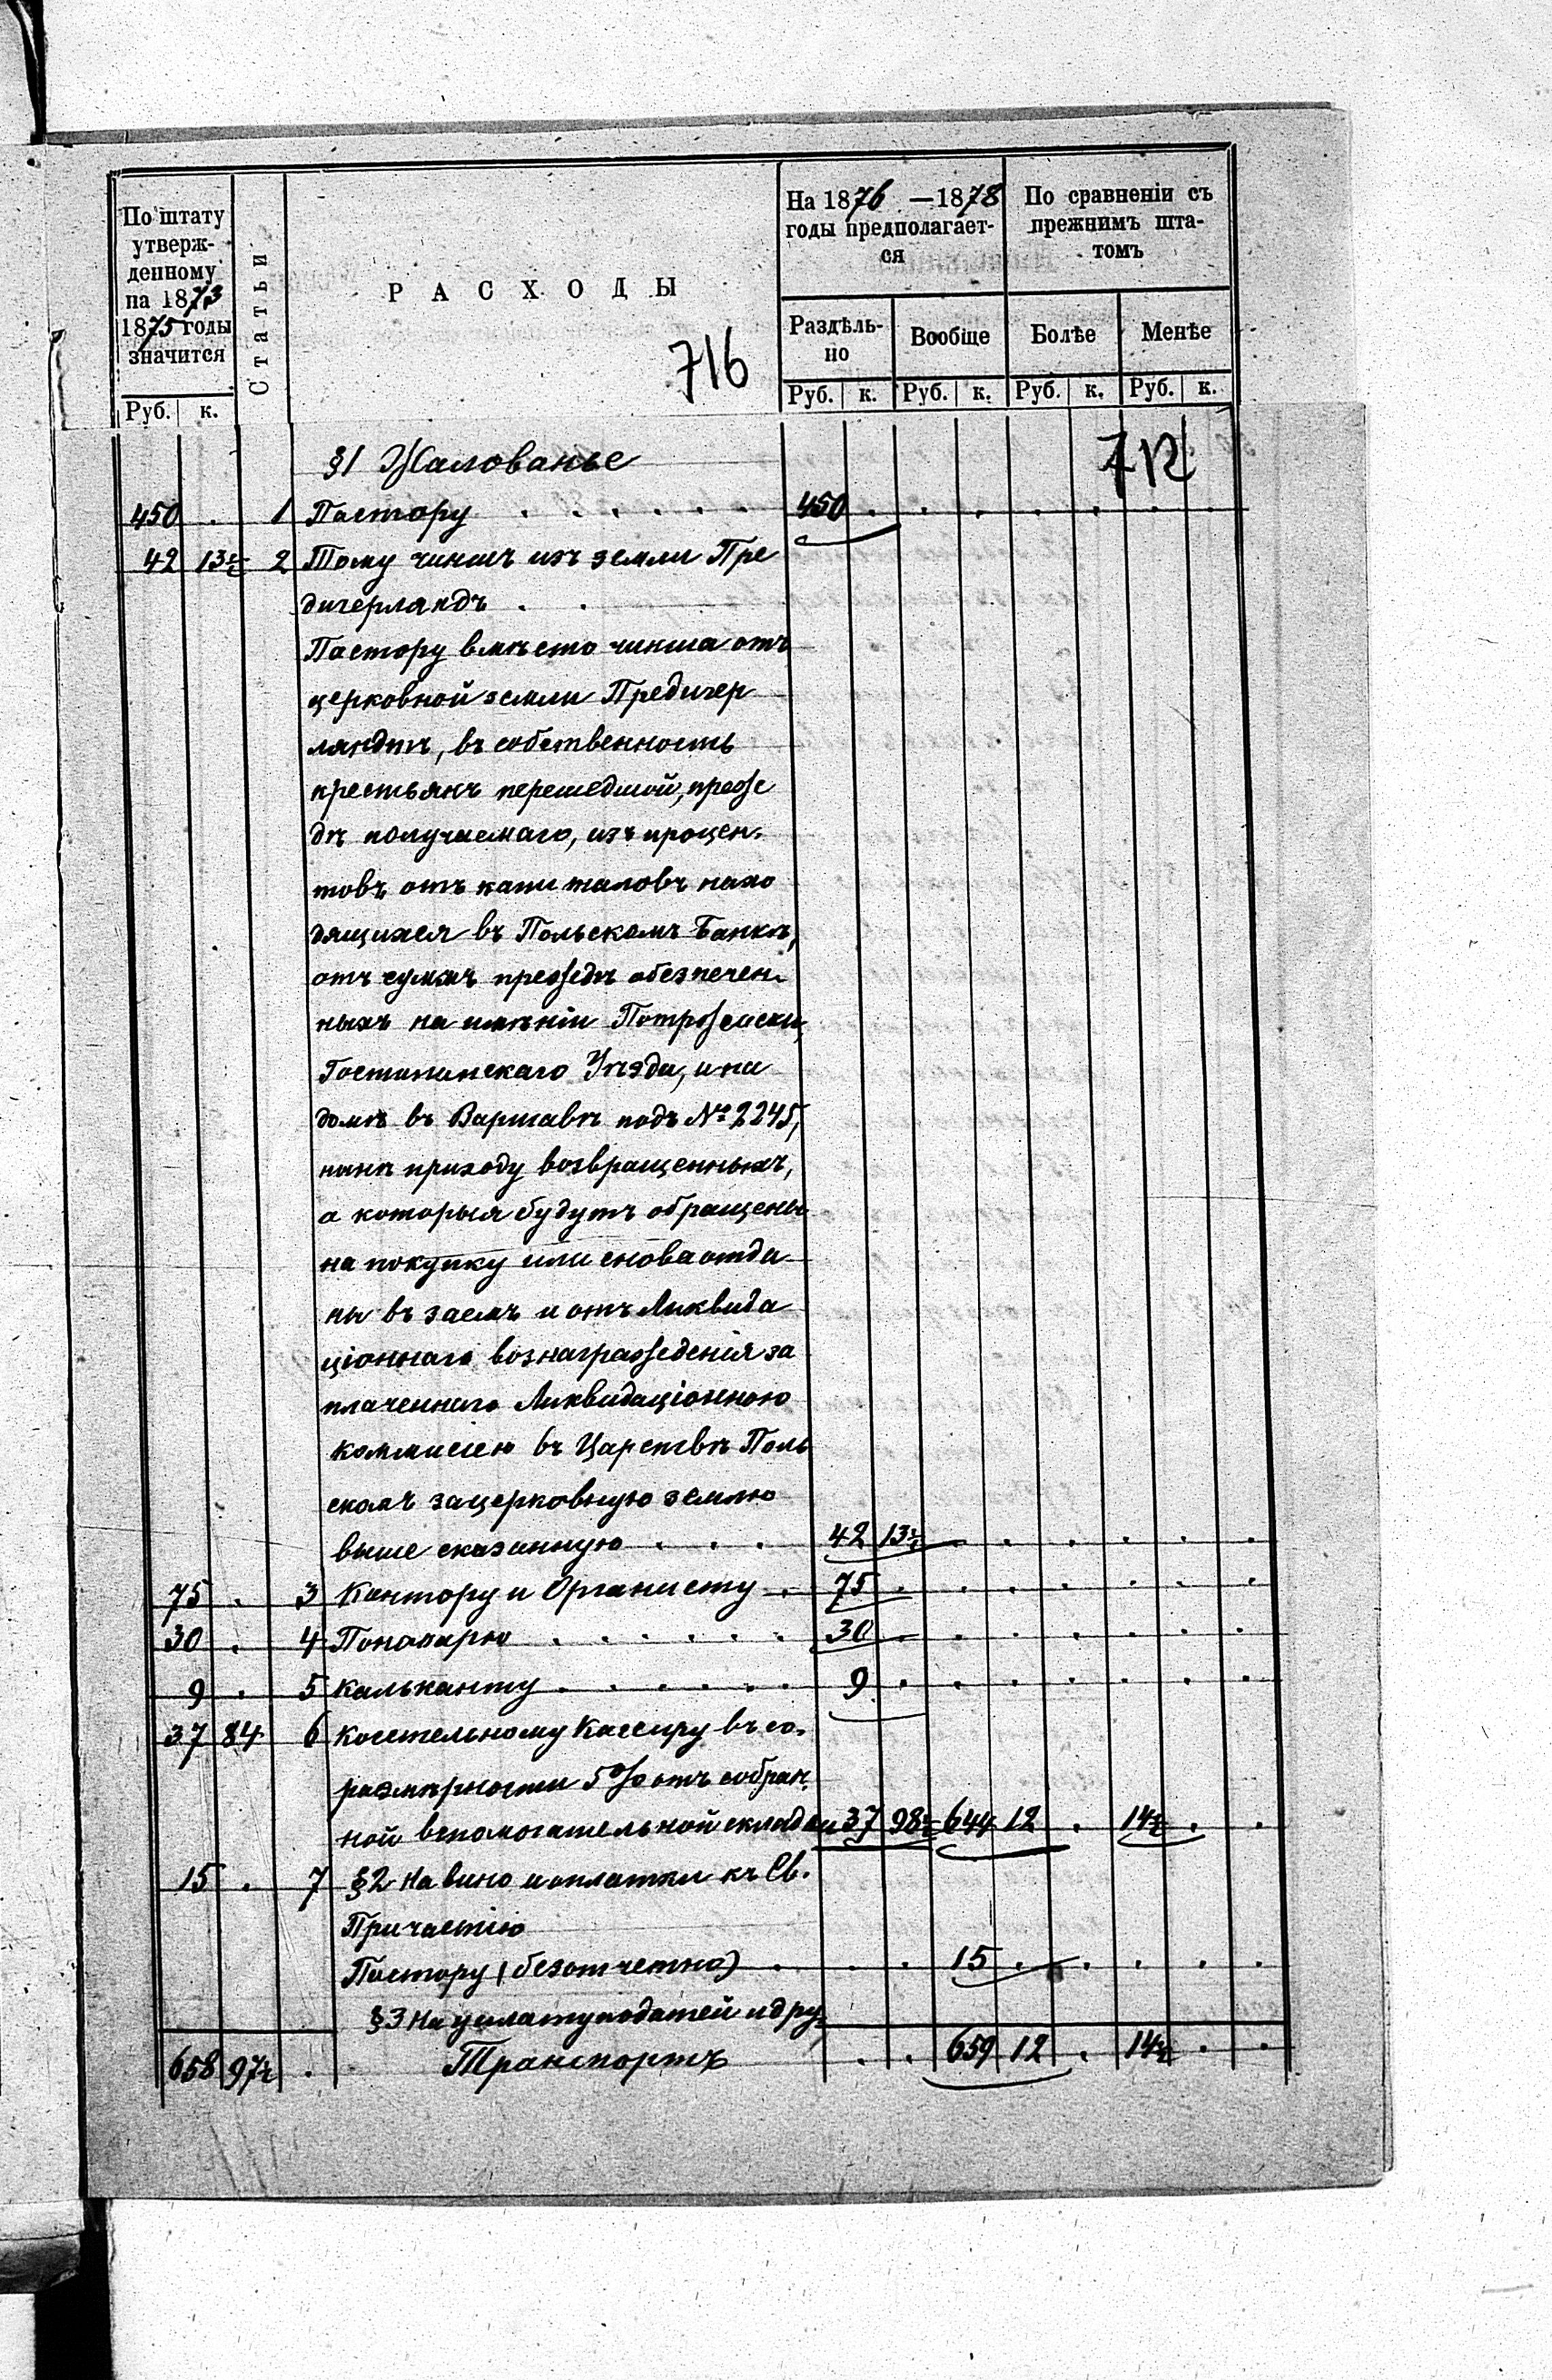 По штату утверж-денному на 1873 1875 годы значится
Статьи
РАСХОДЫ
716
На 1876 —1878 годы предполагает-ся
По сравненіи съ прежнимъ шта-томъ
Раздѣль-но
Вообще
Болѣе
Менѣе
Руб. к.
Руб. к. Руб. к. Руб. к. Руб. к.
§1 Жалованье
712
450 . 1 Пастору . . . . . . 450 . . . . . . .
42 13½ 2 Тому чиншъ изъ земли Пре
дигерляндъ . .
Пастору вмѣсто чинша отъ
церковной земли Предигер
ляндтъ, въ собственность
крестьянъ перешедшой, преж
дѣ получаемаго, изъ процен-
товъ отъ капиталовъ нахо
дящихся въ Польскомъ Банкѣ,
отъ суммъ преждѣ обезпечен-
ныхъ на имѣніи
Гостининскаго Уѣзда, и на
домѣ въ Варшавѣ подъ № 2245,
нынѣ приходу возвращенныхъ,
а которыя будутъ обращены
на покупку или снова отда
ны въ заемъ и отъ Ликвида
ціоннаго вознагражденія за
плаченнаго Ликвидаціонною
коммисіею въ Царствѣ Поль
скомъ за церковную землю
выше сказанную . . . 42 13½ . . . . . .
75 . 3 Кантору и Органисту . 75 . . . . . . .
30 . 4 Понамарю . . . . . . 30 . . . . . .
9 . 5 Кальканту . . . . . . 9 . . . . . . .
37 84 6 Костельному Кассиру въ со-
размѣрности 5% отъ собран
ной вспомогательной складки 37 98½ 644 12 . 14½ . .
15 . 7 §2 На вино и оплатки къ Св.
Причастію
Пастору (безотчетно) . . . 15 . . . . .
§3 На уплату податей и дру-
658 97½ . Транспортъ . . 659 12 . 14½ . .